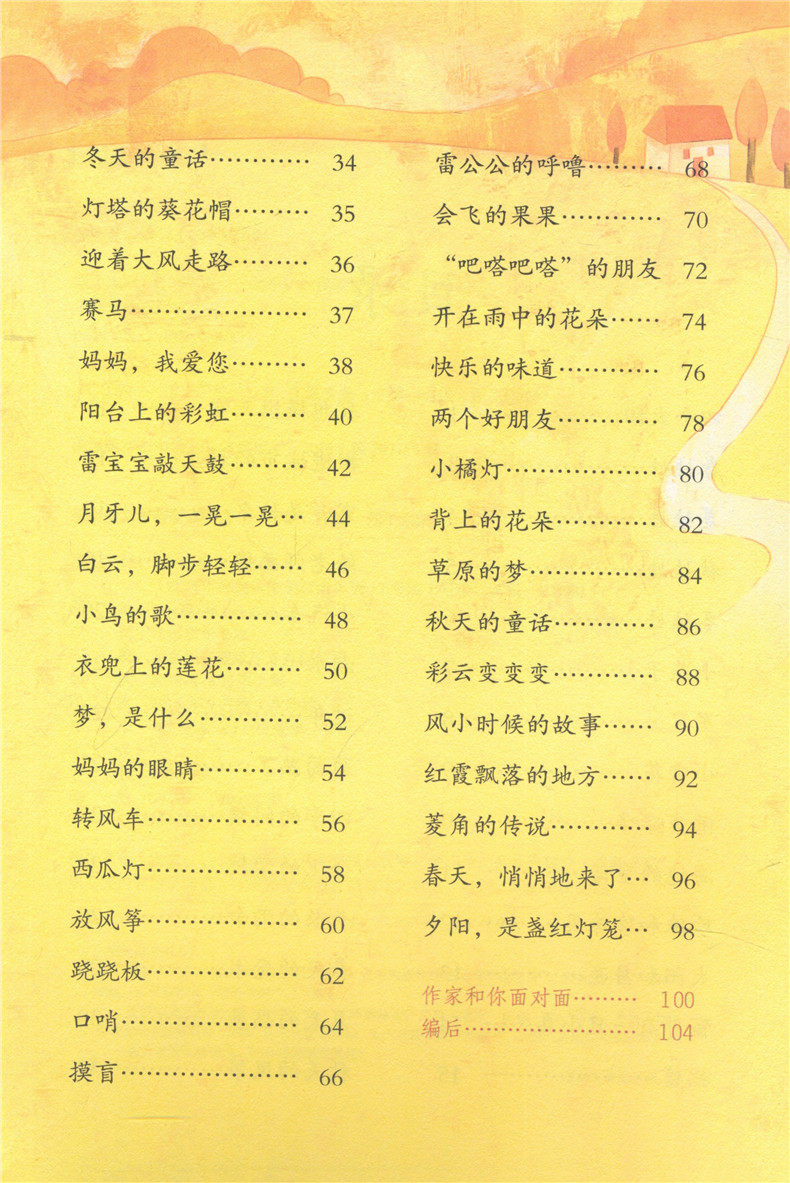 冬天的童话………… 34
灯塔的葵花帽……… 35
迎着大风走路……… 36
赛马………………… 37
妈妈，我爱您……… 38
阳台上的彩虹……… 40
雷宝宝敲天鼓……… 42
月牙儿，一晃一晃… 44
白云，脚步轻轻…… 46
小鸟的歌…………… 48
衣兜上的莲花……… 50
梦，是什么………… 52
妈妈的眼睛………… 54
转风车……………… 56
西瓜灯……………… 58
放风筝……………… 60
跷跷板……………… 62
口哨………………… 64
摸盲………………… 66
雷公公的呼噜……… 68
会飞的果果………… 70
“吧嗒吧嗒”的朋友 72
开在雨中的花朵…… 74
快乐的味道………… 76
两个好朋友………… 78
小橘灯……………… 80
背上的花朵………… 82
草原的梦…………… 84
秋天的童话………… 86
彩云变变变………… 88
风小时候的故事…… 90
红霞飘落的地方…… 92
菱角的传说………… 94
春天，悄悄地来了… 96
夕阳，是盏红灯笼… 98
作家和你面对面……… 100
编后…………………… 104